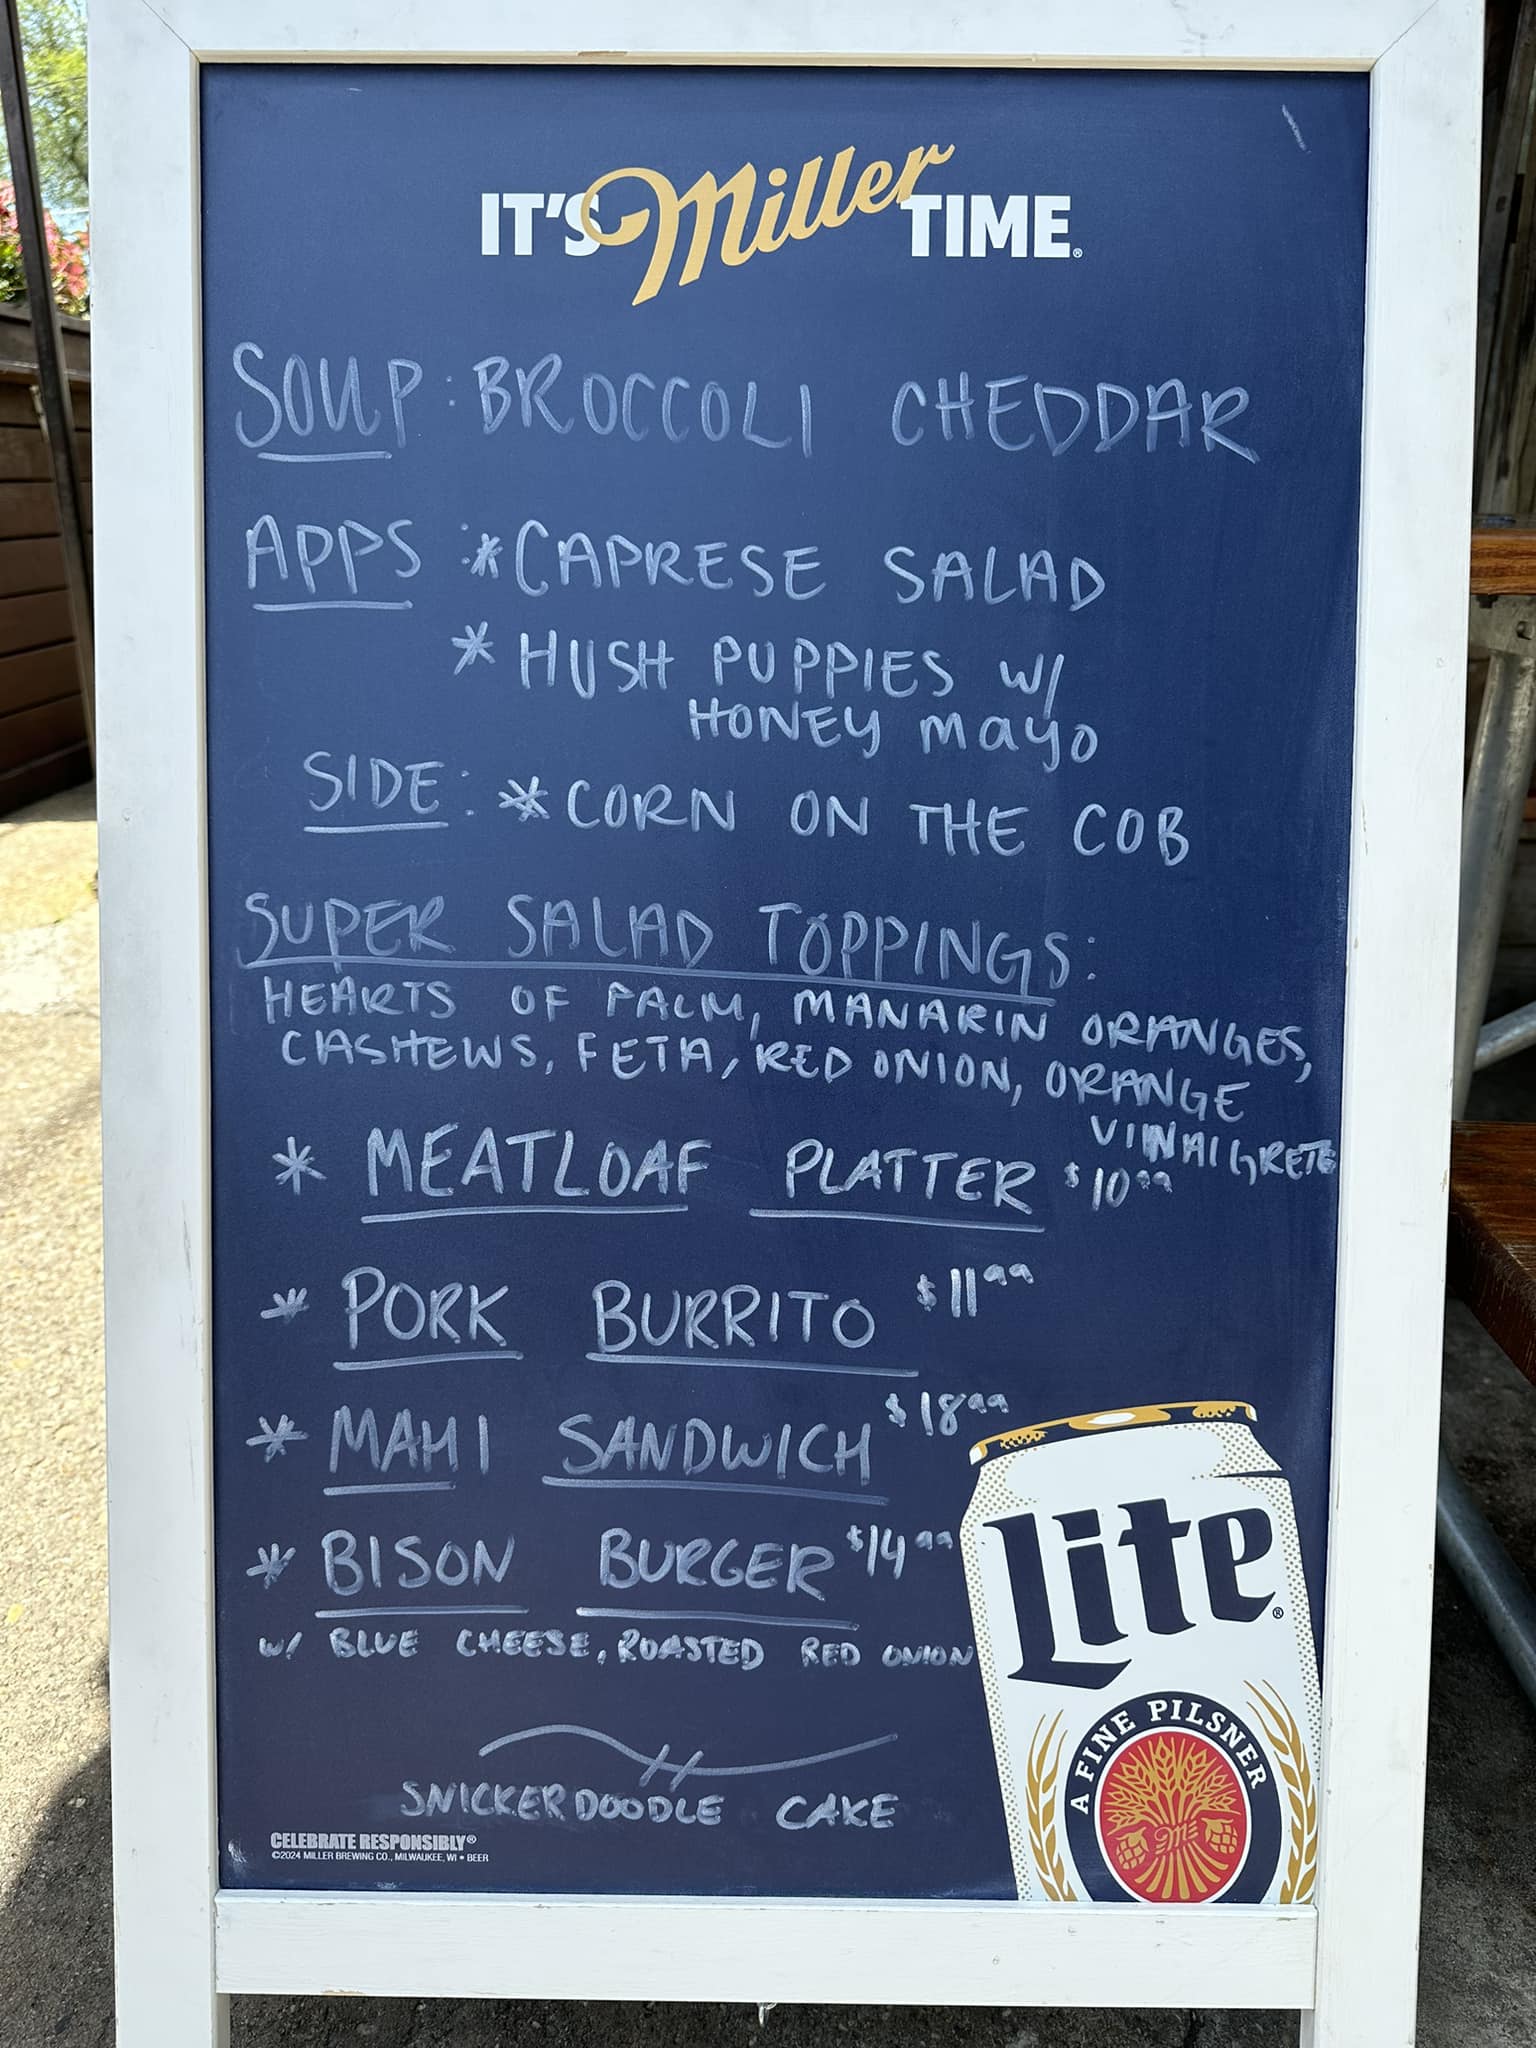 IT'S Miller TIME®
SOUP: BROCCOLI CHEDDAR
APPS: * CAPRESE SALAD
* HUSH PUPPIES W/
HONEY mayo
SIDE: * CORN ON THE COB
SUPER SALAD TOPPINGS:
HEARTS OF PALM, MANARIN ORANGES,
CASHEWS, FETA, RED ONION, ORANGE
VINAIGRETE
* MEATLOAF PLATTER $10.99
* PORK BURRITO $11.99
* MAHI SANDWICH $18.99
* BISON BURGER $14.99
W/ BLUE CHEESE, ROASTED RED ONION
SNICKERDOODLE CAKE
Lite®
A FINE PILSNER
M
CELEBRATE RESPONSIBLY®
©2024 MILLER BREWING CO., MILWAUKEE, WI • BEER